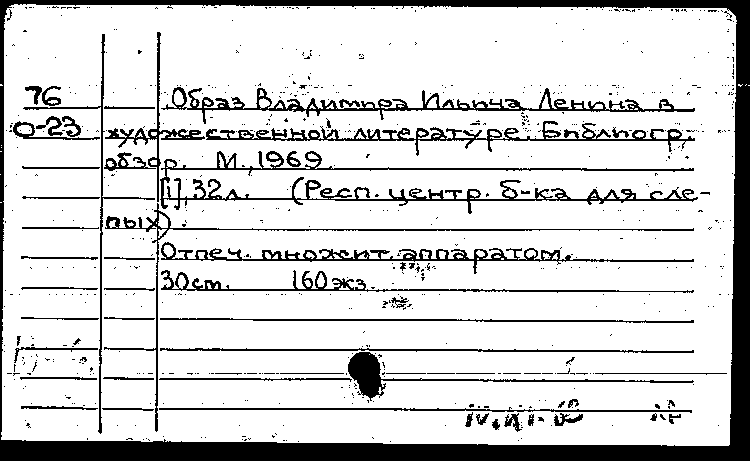 76 Образ Владимира Ильича Ленина в
О-23 художественной литературе. Библиогр.
обзор. М., 1969.
[1], 32л. (Респ. центр. б-ка для сле-
пых).
Отпеч. множит. аппаратом.
30см. 160 экз.